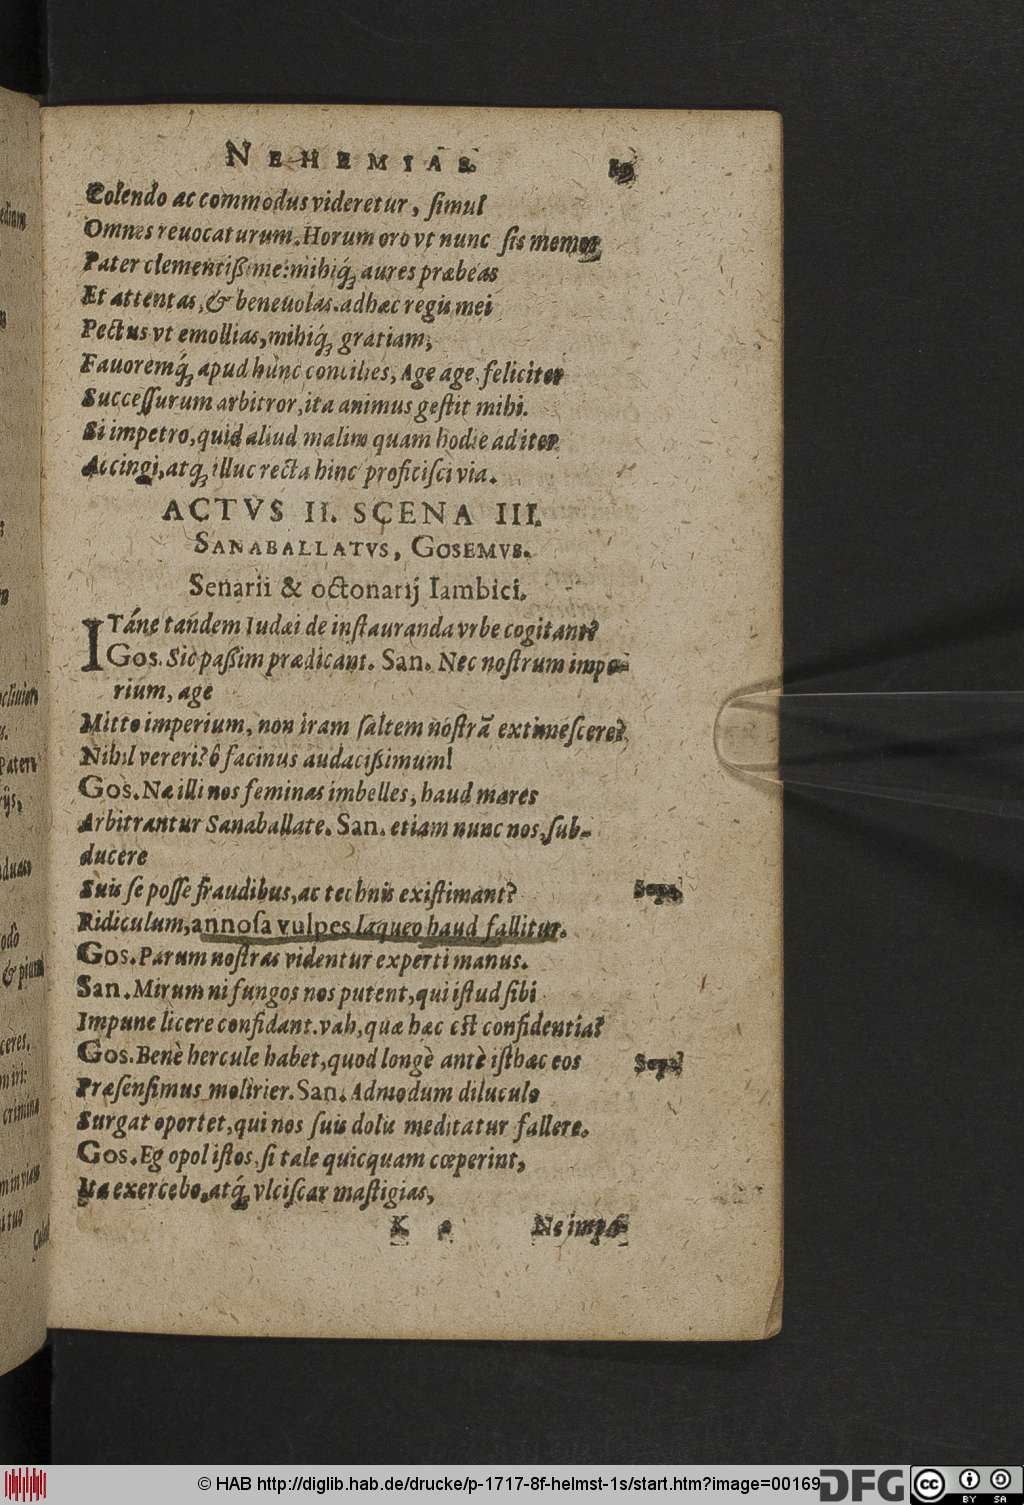 NEHEMIAS.
Colendo ac commodus videretur, ſimul
Omnes reuocaturum. Horum oro vt nunc ſis memor
Pater clementiſsime: mihiq́ꝫ aures præbeas
Et attentas, & beneuolas. adhæc regis mei
Pectus vt emollias, mihiq́ꝫ gratiam,
Fauoremq́ꝫ apud hunc concilies, Age age, feliciter
Succeſſurum arbitror, ita animus geſtit mihi.
Si impetro, quid aliud malim quam hodie ad iter
Accingi, atqꝫ illuc recta hinc proficiſci via.
ACTVS II. SCENA III.
SANABALLATVS, GOSEMVS.
Senarii & octonarij Iambici.
ITáne tandem Iudæi de inſtauranda vrbe cogitant?
Gos. Sic paßim prædicant. San. Nec noſtrum impe-
rium, age
Mitto imperium, non iram ſaltem noſtrã extimeſcere?
Nihil vereri? ô facinus audacißimum!
Gos. Næ illi nos feminas imbelles, haud mares
Arbitrantur Sanaballate. San. etiam nunc nos ſub-
ducere
Suis ſe poſſe fraudibus, ac technis existimant?
Ridiculum, annoſa vulpes laqueo haud fallitur.
Gos. Parum noſtras videntur experti manus.
San. Mirum ni fungos nos putent, qui iſtud ſibi
Impune licere confidant. vah, quæ hæc est confidentia?
Gos. Benè hercule habet, quod longè antè iſthæc eos
Præſenſimus molirier. San. Admodum diluculo
Surgat oportet, qui nos ſuis dolis meditatur fallere.
Gos. Eg opol iſtos, ſi tale quicquam cœperint,
Ita exercebo, atq́ꝫ vlciſcar maſtigias,
K Ne impu-
© HAB http://diglib.hab.de/drucke/p-1717-8f-helmst-1s/start.htm?image=00169
DFG
cc BY SA